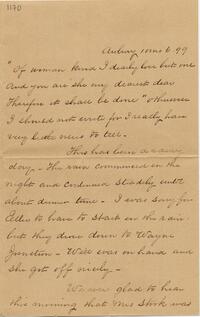 1170
Asbury 10 mo 6. 99
"Of woman kind I dearly love but one
And you are she my dearest dear
Therefore it shall be done" otherwise
I should not write for I really have
very little news to tell.
This has been a rainy
day. The rain commenced in the
night and continued steadily until
about dinner time. I was sorry for
Ellis to have to start in the rain
but they drove down to Wayne
Junction. Will was on hand and
she got off nicely.
We were glad to hear
this morning that Mrs Stork was